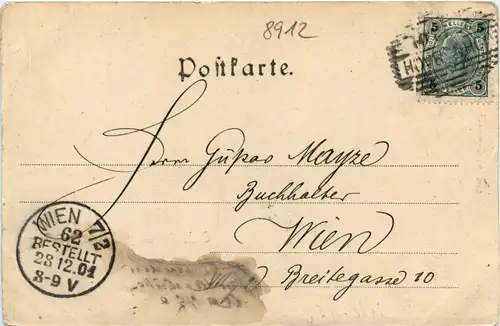 8912
5 5
5
Postkarte.
Herrn Gustav Mayze
Buchhalter
Wien
Breitegasse 10
WIEN 7/2
62
BESTELLT
28 12.01
8-9 V